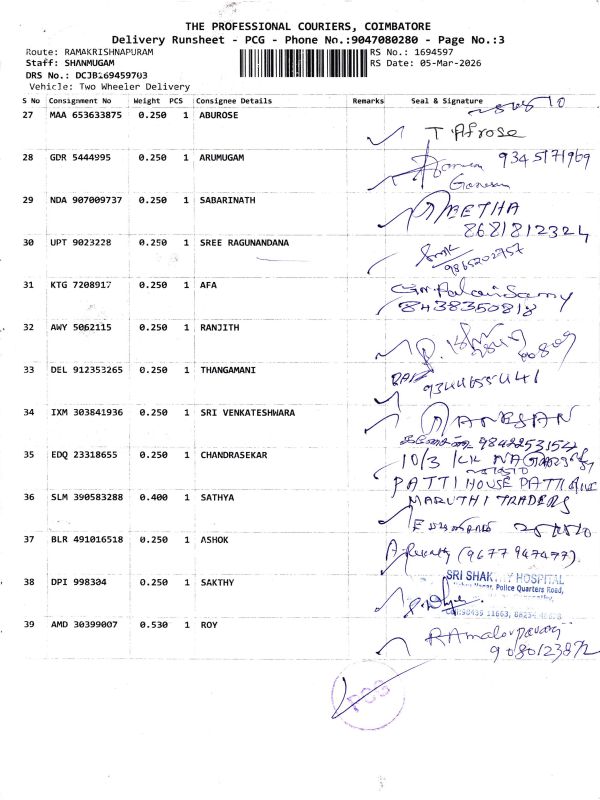 THE PROFESSIONAL COURIERS, COIMBATORE
Delivery Runsheet - PCG - Phone No.:9047080280 - Page No.:3
Route: RAMAKRISHNAPURAM
RS No.: 1694597
Staff: SHANMUGAM
RS Date: 05-Mar-2026
DRS No.: DCJB169459703
Vehicle: Two Wheeler Delivery
S No Consignment No Weight PCS Consignee Details Remarks Seal & Signature
27 MAA 653633875 0.250 1 ABUROSE
T Afrose
28 GDR 5444995 0.250 1 ARUMUGAM
9345171969
Ganesan
29 NDA 907009737 0.250 1 SABARINATH
NEETHA
8681812324
30 UPT 9023228 0.250 1 SREE RAGUNANDANA
9865202757
31 KTG 7208917 0.250 1 AFA
8438350818
32 AWY 5062115 0.250 1 RANJITH
33 DEL 912353265 0.250 1 THANGAMANI
34 IXM 303841936 0.250 1 SRI VENKATESHWARA
MANESAN
9842253154
35 EDQ 23318655 0.250 1 CHANDRASEKAR
10/3
PATTI HOUSE
36 SLM 390583288 0.400 1 SATHYA
MARUTHI TRADERS
37 BLR 491016518 0.250 1 ASHOK
(9677 947477)
38 DPI 998304 0.250 1 SAKTHY
SRI SHAKTHY HOSPITAL
Police Quarters Road,
39 AMD 30399007 0.530 1 ROY
9080123872
PCG